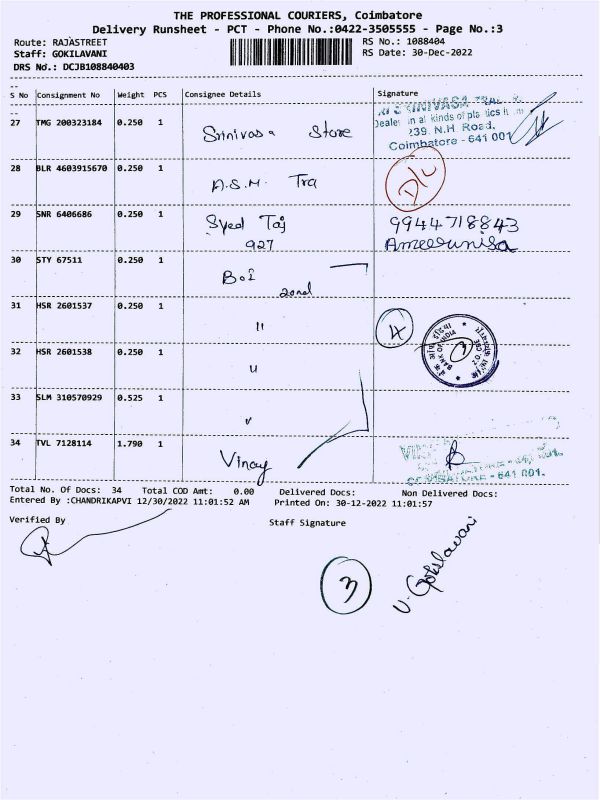 THE PROFESSIONAL COURIERS, Coimbatore
Delivery Runsheet - PCT - Phone No.:0422-3505555 - Page No.:3
Route: RAJASTREET
RS No.: 1088404
Staff: GOKILAVANI
RS Date: 30-Dec-2022
DRS No.: DCJB108840403
S No Consignment No Weight PCS Consignee Details Signature
27 TMG 200323184 0.250 1 Srinivasa Store
Dealer in all kinds of plastics
239, N.H. Road,
Coimbatore - 641 001
28 BLR 4603915670 0.250 1 A.S.M. Tra D/L
29 SNR 6406686 0.250 1 Syed Taj 9944718843
927 Ameerunisa
30 STY 67511 0.250 1 BOI
zonal
31 HSR 2601537 0.250 1 11 4
BANK OF INDIA
32 HSR 2601538 0.250 1 11
33 SLM 310570929 0.525 1 "
34 TVL 7128114 1.790 1 Vinay
COIMBATORE - 641 001.
Total No. Of Docs: 34 Total COD Amt: 0.00 Delivered Docs: Non Delivered Docs:
Entered By :CHANDRIKAPVI 12/30/2022 11:01:52 AM Printed On: 30-12-2022 11:01:57
Verified By Staff Signature
3
V. Gokilavani